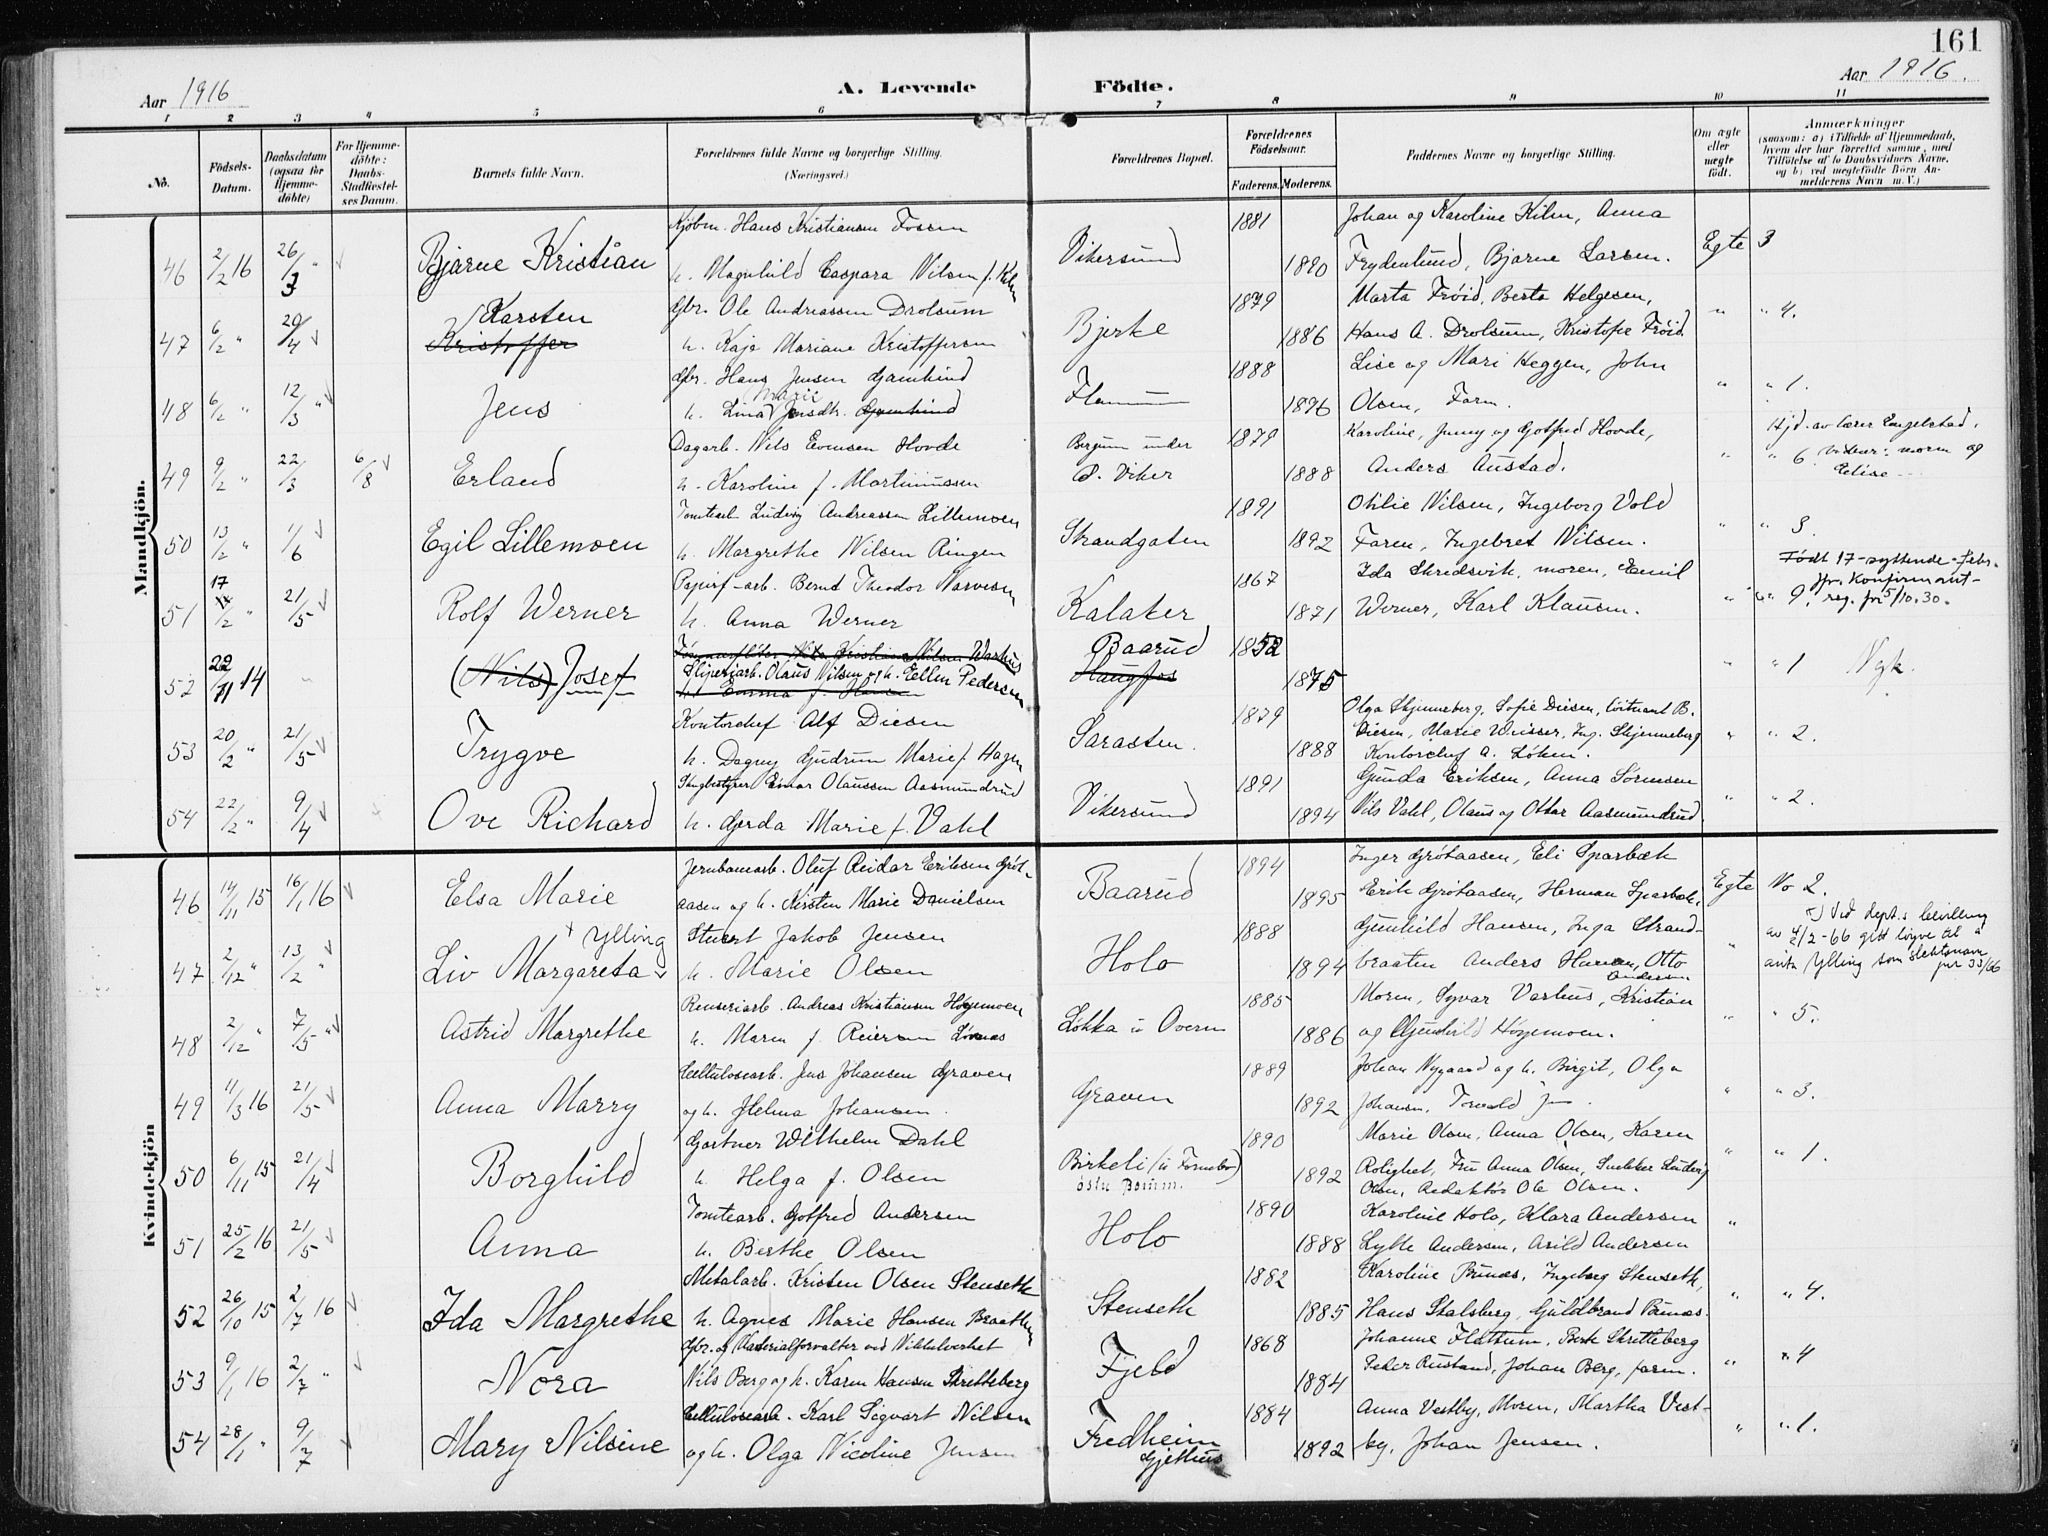 161
Aar 1916
A. Levende
Födte.
Aar 1916.
1 2 3 4 5 6 7 8 9 10 11
No.
Födsels-Datum.
Daabsdatum (ogsaa for Hjemme-döbte)
For Hjemme-döbte: Daabs-Stadfæstel-ses Datum.
Barnets fulde Navn.
Forældrenes fulde Navne og borgerlige Stilling.
(Næringsvei.)
Forældrenes Bopæl.
Forældrenes Födselsaar.
Faderens. Moderens.
Faddernes Navne og borgerlige Stilling.
Om ægte eller uægte födt.
Anmærkninger
(saasom: a) i Tilfælde af Hjemmedaab, hvem der har forrettet samme, med Tilföielse af to Daabsvidners Navne, og b) ved uægtefödte Börn An-melderens Navn m. V.)
Mandkjön.
Kjöbm. Hans Kristiansen Fossen 1881 Johan og Karoline Kilm, Anna
46 2/2 16 26/3 " Bjarne Kristian h. Magnhild Caspara Nilsen f. Vikersund 1890 Frydenlund, Bjarne Larsen. Egte 3
Karsten Gbr. Ole Andreassen Drolsum 1879 Marta Frøid, Berta Helgesen,
47 6/2 " 24/4 Kristoffer h. Kaja Mariane Kristoffersen Bjerke 1886 Hans A. Drolsum, Kristofer Frøid. " " 4.
Gbr. Hans Jensen Gamkind 1888 Lise og Mari Heggen, John
Marie
48 6/2 " 12/3 " Jens h. Lina Jensdtr. Gamkind 1896 Olsen, Farm. " " 1.
Dagarb. Nils Evensen Hovde Bergum under 1879 Karoline, Jenny og Gotfred Hovde, Hjd. av lærer Engelstad,
49 9/2 " 22/3 6/8 Erland h. Karoline f. Martinussen Ø. Viker 1888 Anders Austad. " " 6. vidner: moren og
Tomtearb. Ludvig Andreassen Lillemoen 1891 Otilie Nilsen, Ingeborg Vold
50 13/2 " 11/6 Egil Lillemoen h. Margrethe Nilsen Ringen Strandgaten 1892 Faren, Ingebret Nilsen. " " 3.
Født 17-syttende-febr.
Papirf-arb. Bernt Theodor Narvesen 1867 Ida Skredsvik, moren, Emil ifr. Konfirmant-
51 17/2 " 21/5 Rolf Werner h. Anna Werner Kalaker 1871 Werner, Karl Klausen. " " 9. reg. for 5/10.30.
Tømmerfløter Nils Kristian Nilsen Warhus Baarud 1852
Sliperiarb. Olaus Nilsen og h. Ellen Pedersen
52 22/11 14 " (Nils) Josef h. Emma f. Hansen Haugfos 1875 " " 1 Ngk.
Kontorchef Alf Diesen 1879 Olga Skjenneberg, Sofie Diesen, løitnant B.
53 20/2 " 21/5 Trygve h. Dagny Gudrun Marie f. Hagen Sarasten. 1888 Diesen, Marie Weisser, Ing. Skjenneberg " " 2.
Kontorchef A. Løken.
Sagbestyrer Einar Olaussen Aasmundrud 1891 Gunda Eriksen, Anna Sørensen
54 22/2 " 9/4 Ove Richard h. Gerda Marie f. Vahl Vikersund 1894 Nils Vahl, Olaus og Ottar Aasmundrud. " " 2.
Kvindekjön
Jernbanearb. Oluf Reidar Eriksen Grøt- 1894 Inger Grøtaasen, Eli Sparbæk
46 14/11 15 16/1 16 Elsa Marie aasen og h. Kirsten Marie Danielsen Baarud 1895 Erik Grøtaasen, Herman Sparbæk, Egte No 2.
x) Ved dept.s bevilling
x Ylling Stuert Jakob Jensen 1888 Gunhild Hansen, Inga Strand- av 4/2-66 gitt løyve til å
47 2/12 " 13/2 " Liv Margareta h. Marie Olsen Holo 1894 braaten Anders Hansen, Otto " anta Ylling som slektsnavn
Andersen jnr 33/66
Renseriarb. Andreas Kristiansen Høgemoen 1885 Moren, Syvar Varhus, Kristian
48 2/12 " 7/5 " Astrid Margrethe h. Maren f. Reiersen Løvaas Løkka u Overn 1886 og Gunhild Høgemoen. " " 5.
Cellulosearb. Jens Johansen Graven 1889 Johan Nygaard og h. Birgit, Olga
49 11/3 16 21/5 Anna Marry og h. Helma Johansen. Graven 1892 Johansen, " " 3.
Gartner Wilhelm Dahl 1890 Marie Olsen, Anna Olsen, Karen
50 6/11 15 21/4 Borghild h. Helga f. Olsen Birkeli (u Fornebo) 1892 Rolighet, Fru Anna Olsen, Snekker Ludvig " " 1.
østre Bærum. Olsen, Redaktør Ole Olsen.
Tomtearb. Gotfred Andersen 1890 Karoline Holo, Klara Andersen "
51 25/2 16 21/5 Anna h. Berthe Olsen Holo 1888 Lylle Andersen, Arild Andersen
Metalarb. Kristen Olsen Stenseth 1882 Karoline Brunæs, Ingeborg Stenseth,
52 26/10 15 2/7 16 Ida Margrethe h. Agnes Marie Hansen Braathen Stenseth 1885 Hans Stalsberg, Guldbrand Brunæs. " " 4.
Gbr. og Materialforvalter ved Nikkelverket 1868 Johanne Flattum, Berte Skretteberg
53 9/1 16 2/7 " Nora Nils Berg og h. Karen Hansen Skretteberg Fjeld 1884 Peder Rustand, Johan Berg, faren. " " 4
Cellulosearb. Karl Sigvart Nilsen 1884 Anna Vestby, Moren, Martha Vest-
54 28/1 " 9/7 Mary Nilsine og h. Olga Nicoline Jensen Fredheim 1892 by, Johan Jensen. " " 1.
Gjethus